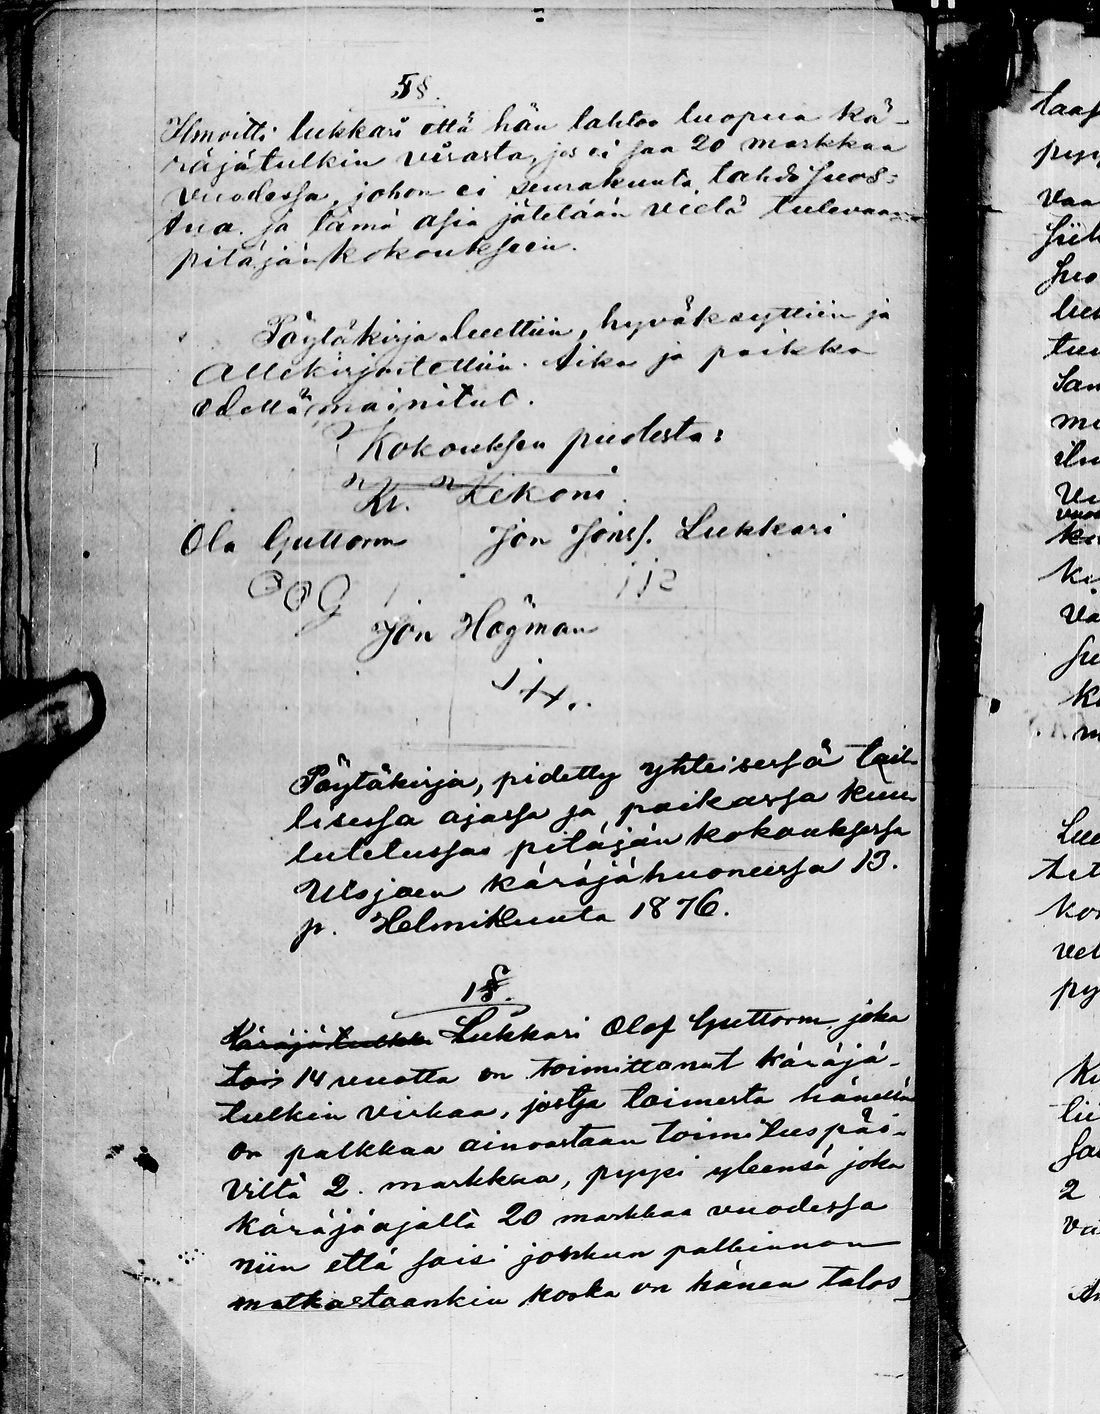 5§.
Ilmoitti lukkari että hän tahtoo luopua kä-
räjätulkin virasta, jos ei saa 20 markkaa
vuodessa, johon ei seurakunta tahdo suos-
tua. ja tämä asia jätetään vielä tulevaan
pitäjän kokoukseen.
Pöytäkirja luettiin, hyväksyttiin ja
allekirjoitettiin. Aika ja paikka
edellä mainitut.
Kokouksen puolesta:
Kr. Hekoni.
Ola Guttorm Jon Jonss. Lukkari
OOG JJS
Jon Högman
JH.
Pöytäkirja, pidetty yhteisessä lail-
lisessa ajassa ja paikassa kuu-
lutetussa pitäjän kokouksessa
Utsjoen käräjähuoneessa 13.
p. Helmikuuta 1876.
1§.
Käräjätulkki Lukkari Olof Guttorm joka
tois 14 vuotta on toimittanut käräjä-
tulkin virkaa, josta toimesta hänellä
on palkkaa ainoastaan toimituspäi-
viltä 2. markkaa, pyysi yleensä joka
käräjäajalta 20 markkaa vuodessa
niin että saisi jonkun palkinnon
matkastaankin koska on hänen talos
taas
pyy
vaa
siit
suo
tuu
San
mu
ilm
vuos
ko
ki
vä
su
ka
m
Lue
tet
kok
vel
py
2